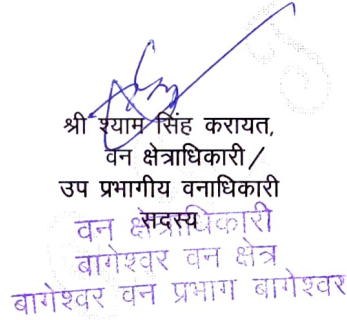 श्री श्याम सिंह करायत,
वन क्षेत्राधिकारी /
उप प्रभागीय वनाधिकारी
सदस्य
वन क्षेत्राधिकारी
बागेश्वर वन क्षेत्र
बागेश्वर वन प्रभाग बागेश्वर